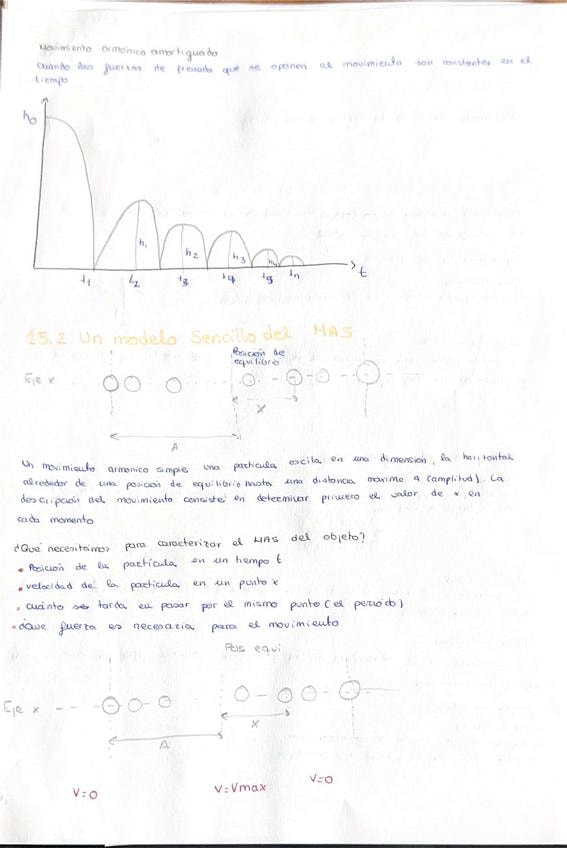 Movimiento armónico amortiguado
Cuando las fuerzas de frenado que se oponen al movimiento son constantes en el
tiempo
h0
h1
h2
h3
h4
t1 t2 t3 t4 t5 tn
t
15.2 Un modelo Sencillo del MAS
Posición de
equilibrio
Eje x
x
A
Un movimiento armonico simple una particula oscila en una dimensión, la horizontal
alrededor de una posición de equilibrio hasta una distancia maxima A (amplitud). La
descripción del movimiento consiste en determinar primero el valor de x en
cada momento
¿Qué necesitamos para caracterizar el MAS del objeto?
• Posición de la partícula en un tiempo t
• velocidad de la particula en un punto x
• cuánto se tarda en pasar por el mismo punto (el período)
• ¿Que fuerza es necesaria para el movimiento
Pos equi
Eje x
x
A
V=0
V=Vmax
V=0